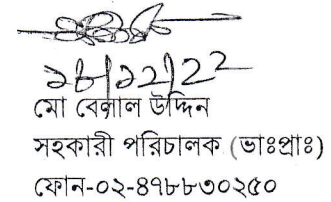 ২৮/১২/২২
মো বেলাল উদ্দিন
সহকারী পরিচালক (ভাঃপ্রাঃ)
ফোন-০২-৪৭৮৮৩০২৫০